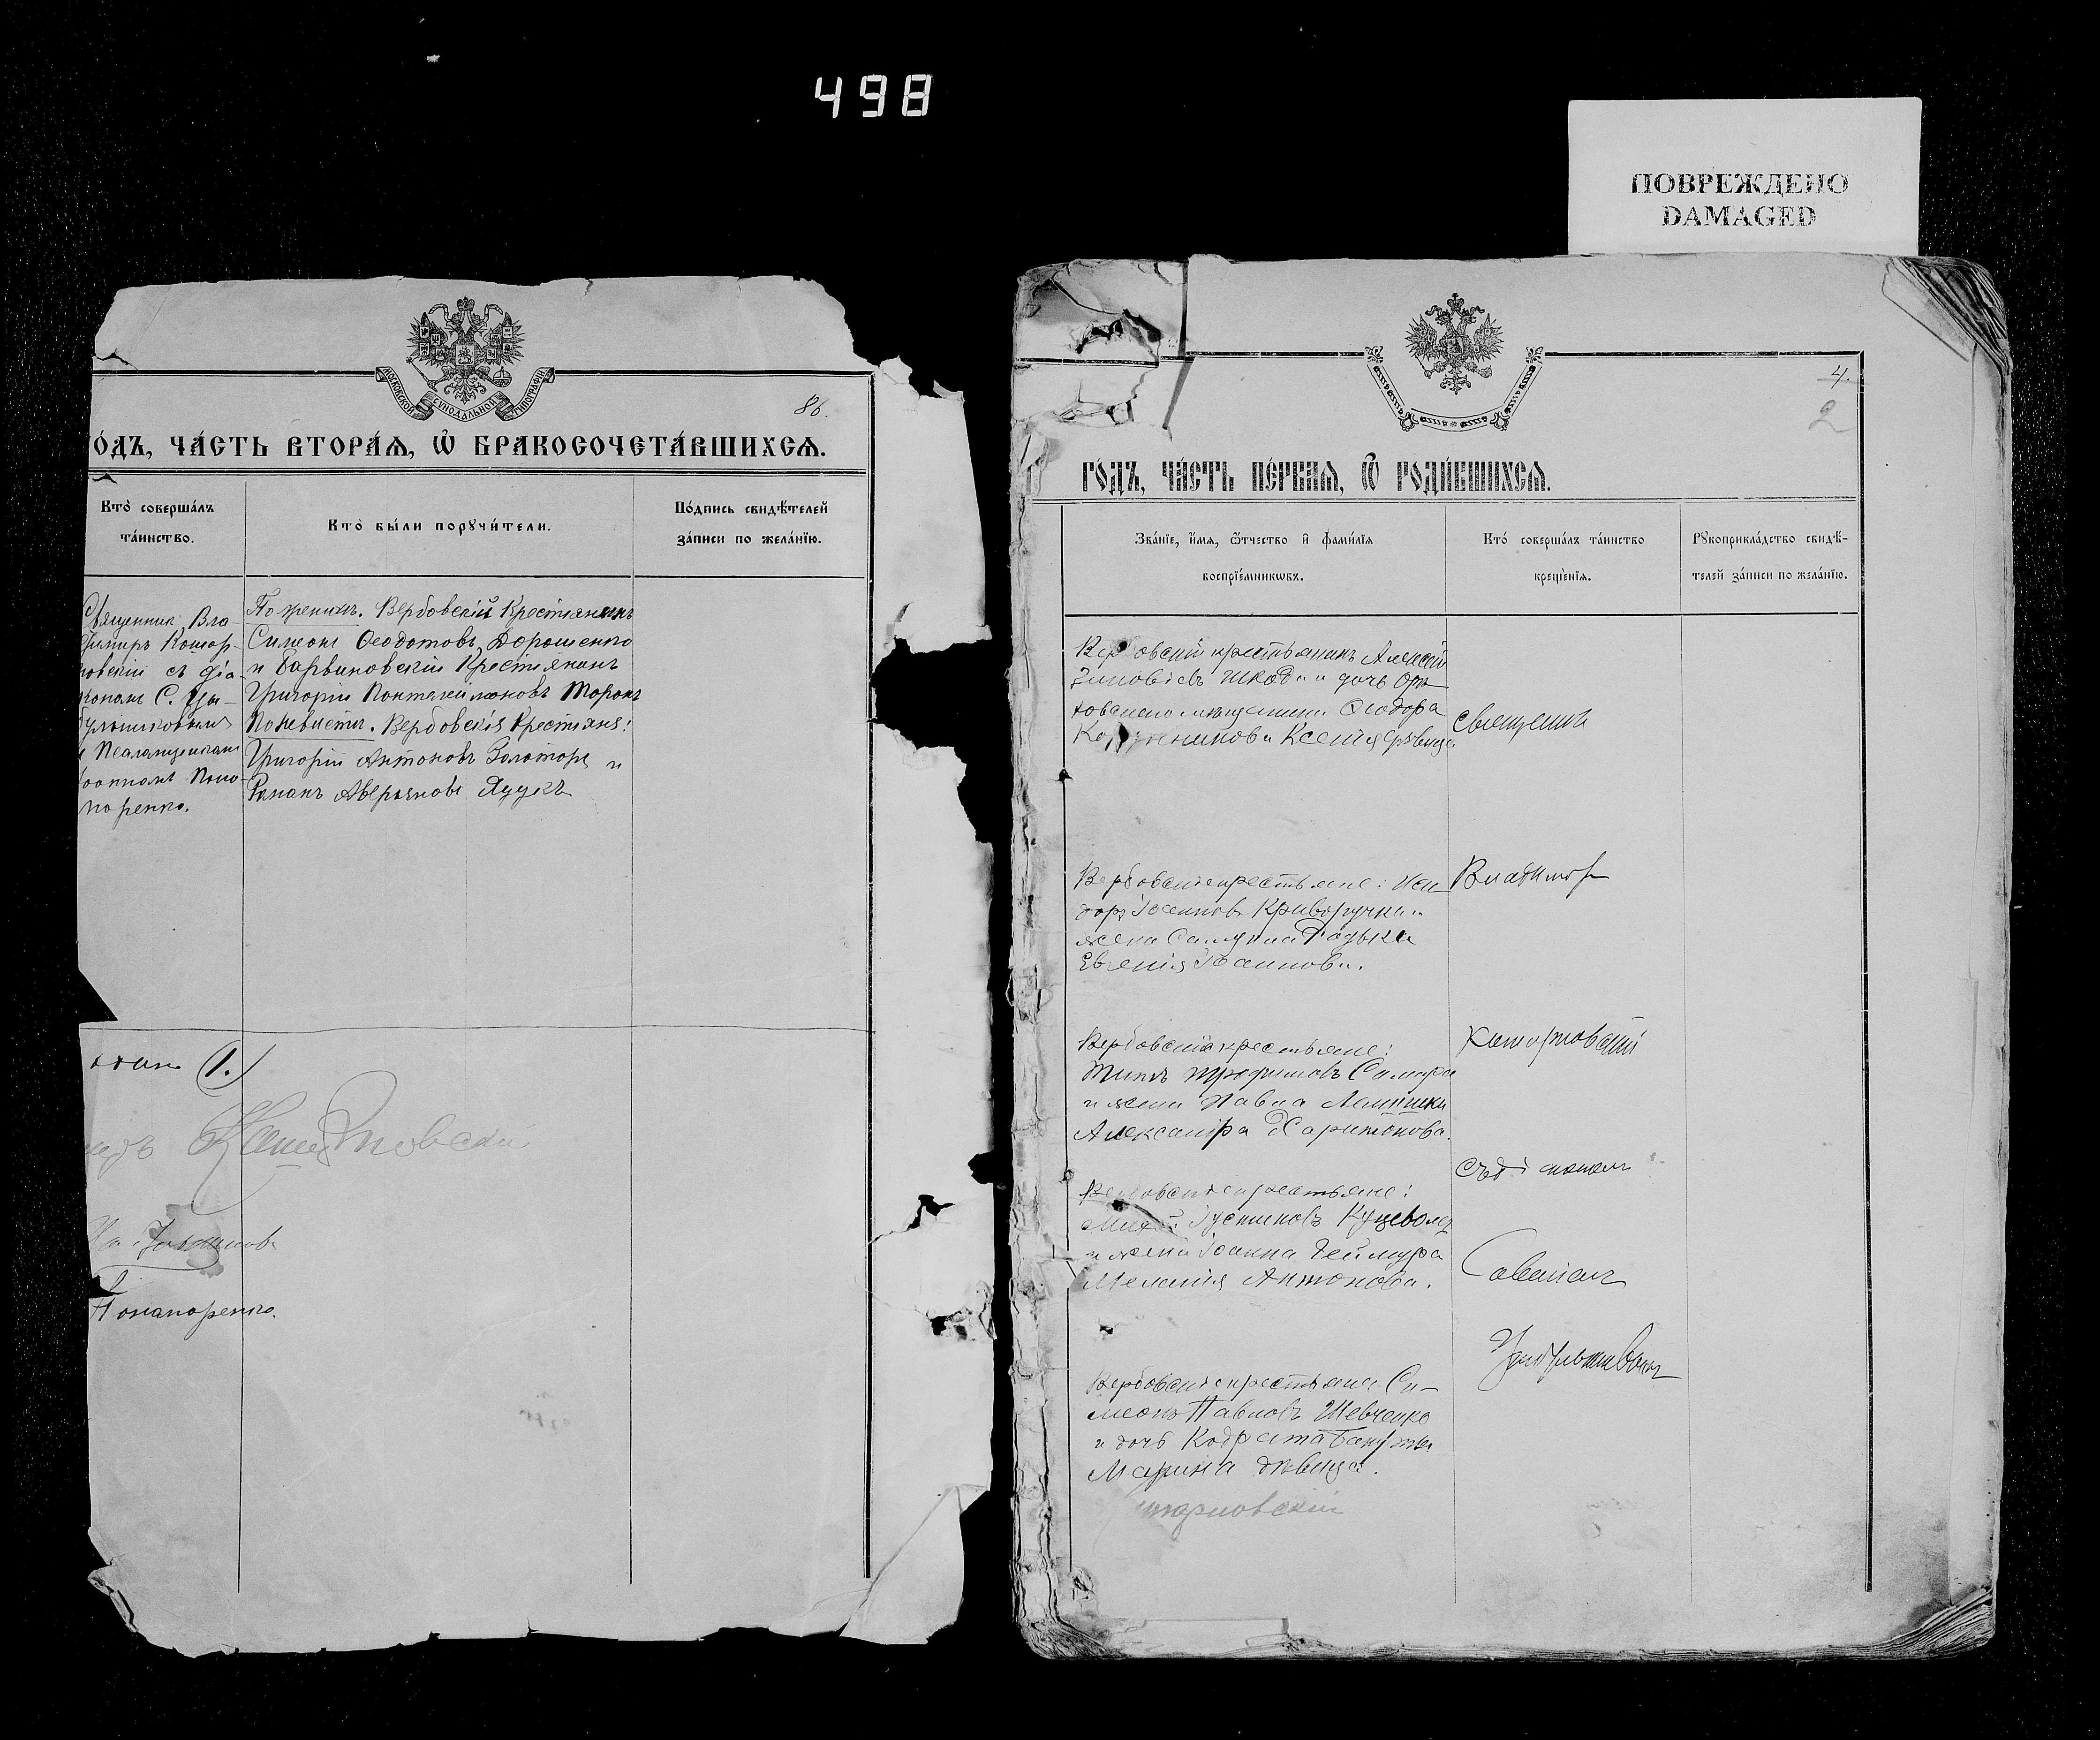 498
ПОВРЕЖДЕНО
DAMAGED
МОСКОВСКОЙ СѴНОДАЛЬНОЙ ТИПОГРАФІИ
86.
О́ДЪ, ЧА́СТЬ ВТОРА́Ѧ, Ѿ БРАКОСОЧЕТА́ВШИХСѦ.
Кто̀ соверша́лъ
та́инство.
Кто̀ бы́ли порꙋчи́тели.
По́дпись свидѣ́телей
за́писи по жела́нїю.
Священник Вла-
димиръ Кошар-
новскій съ діа-
кономъ С. Цы-
бульниковымъ
и Псаломщикомъ
Поно-
маренко.
По женихѣ. Вербовскій Крестьянинъ
Симеонъ Ѳеодотовъ Дорошенко
и Барвиновскій Крестьянинъ
Григорій Пантелимоновъ Торонъ
По невѣстѣ. Вербовскія Крестьяне:
Григорій Антоновъ Золоторъ и
Романъ Аверьяновъ Дудкъ
(1.)
Пономаренко.
4.
2
ГО́ДЪ, ЧА́СТЬ ПЕ́РВАѦ, Ѿ РОДИ́ВШИХСѦ.
Зва́нїе, и́мѧ, ѻ́тчество и̂ фами́лїѧ
воспрїе́мниковъ.
Кто̀ соверша́лъ та́инство
креще́нїѧ.
Рꙋкоприкла́дство свидѣ́-
телей за́писи по жела́нїю.
Вербовскій крестьянинъ Алексій
Зиновіевъ Шкода и дочь Орѣ-
ховскаго мѣщанина Ѳеодора
Ксенія дѣвица
Священникъ
Вербовскіе крестьяне: Иси-
доръ Іоанновъ Криворучка и
жена Самуила Радька
Евгенія Іоаннова.
Владимір
Вербовскіе крестьяне:
Титъ Трофимовъ Самара
и жена Павла Лемишки
Александра Харитонова.
Кошарновскій
Вербовскіе крестьяне:
Іустиновъ Куцеволъ
и жена Іоанна Реймура
Меланія Антонова.
съ діакономъ
Саввиномъ
Вербовскіе крестьяне Си-
меонъ Павловъ Шевченко
и дочь Кодрата
Марина дѣвица.
Цыбульниковымъ